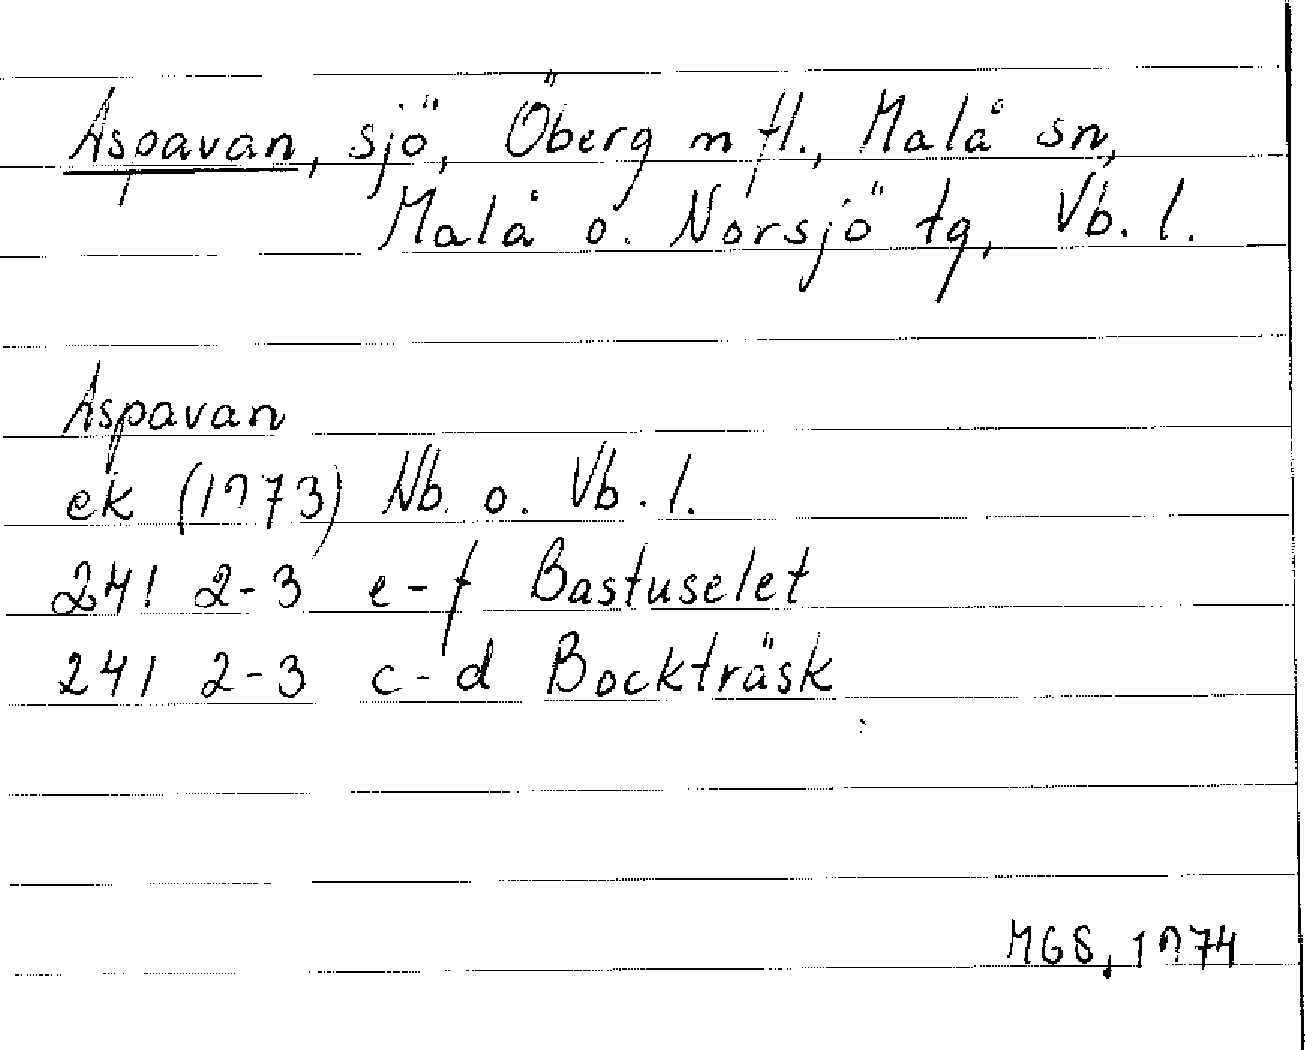 Aspavan, sjö, Öberg m fl., Malå sn,
Malå o. Norsjö tg, Vb. l.
Aspavan
ek (1973) Nb. o. Vb. l.
24I 2-3 e-f Bastuselet
24I 2-3 c-d Bockträsk
MGS, 1974